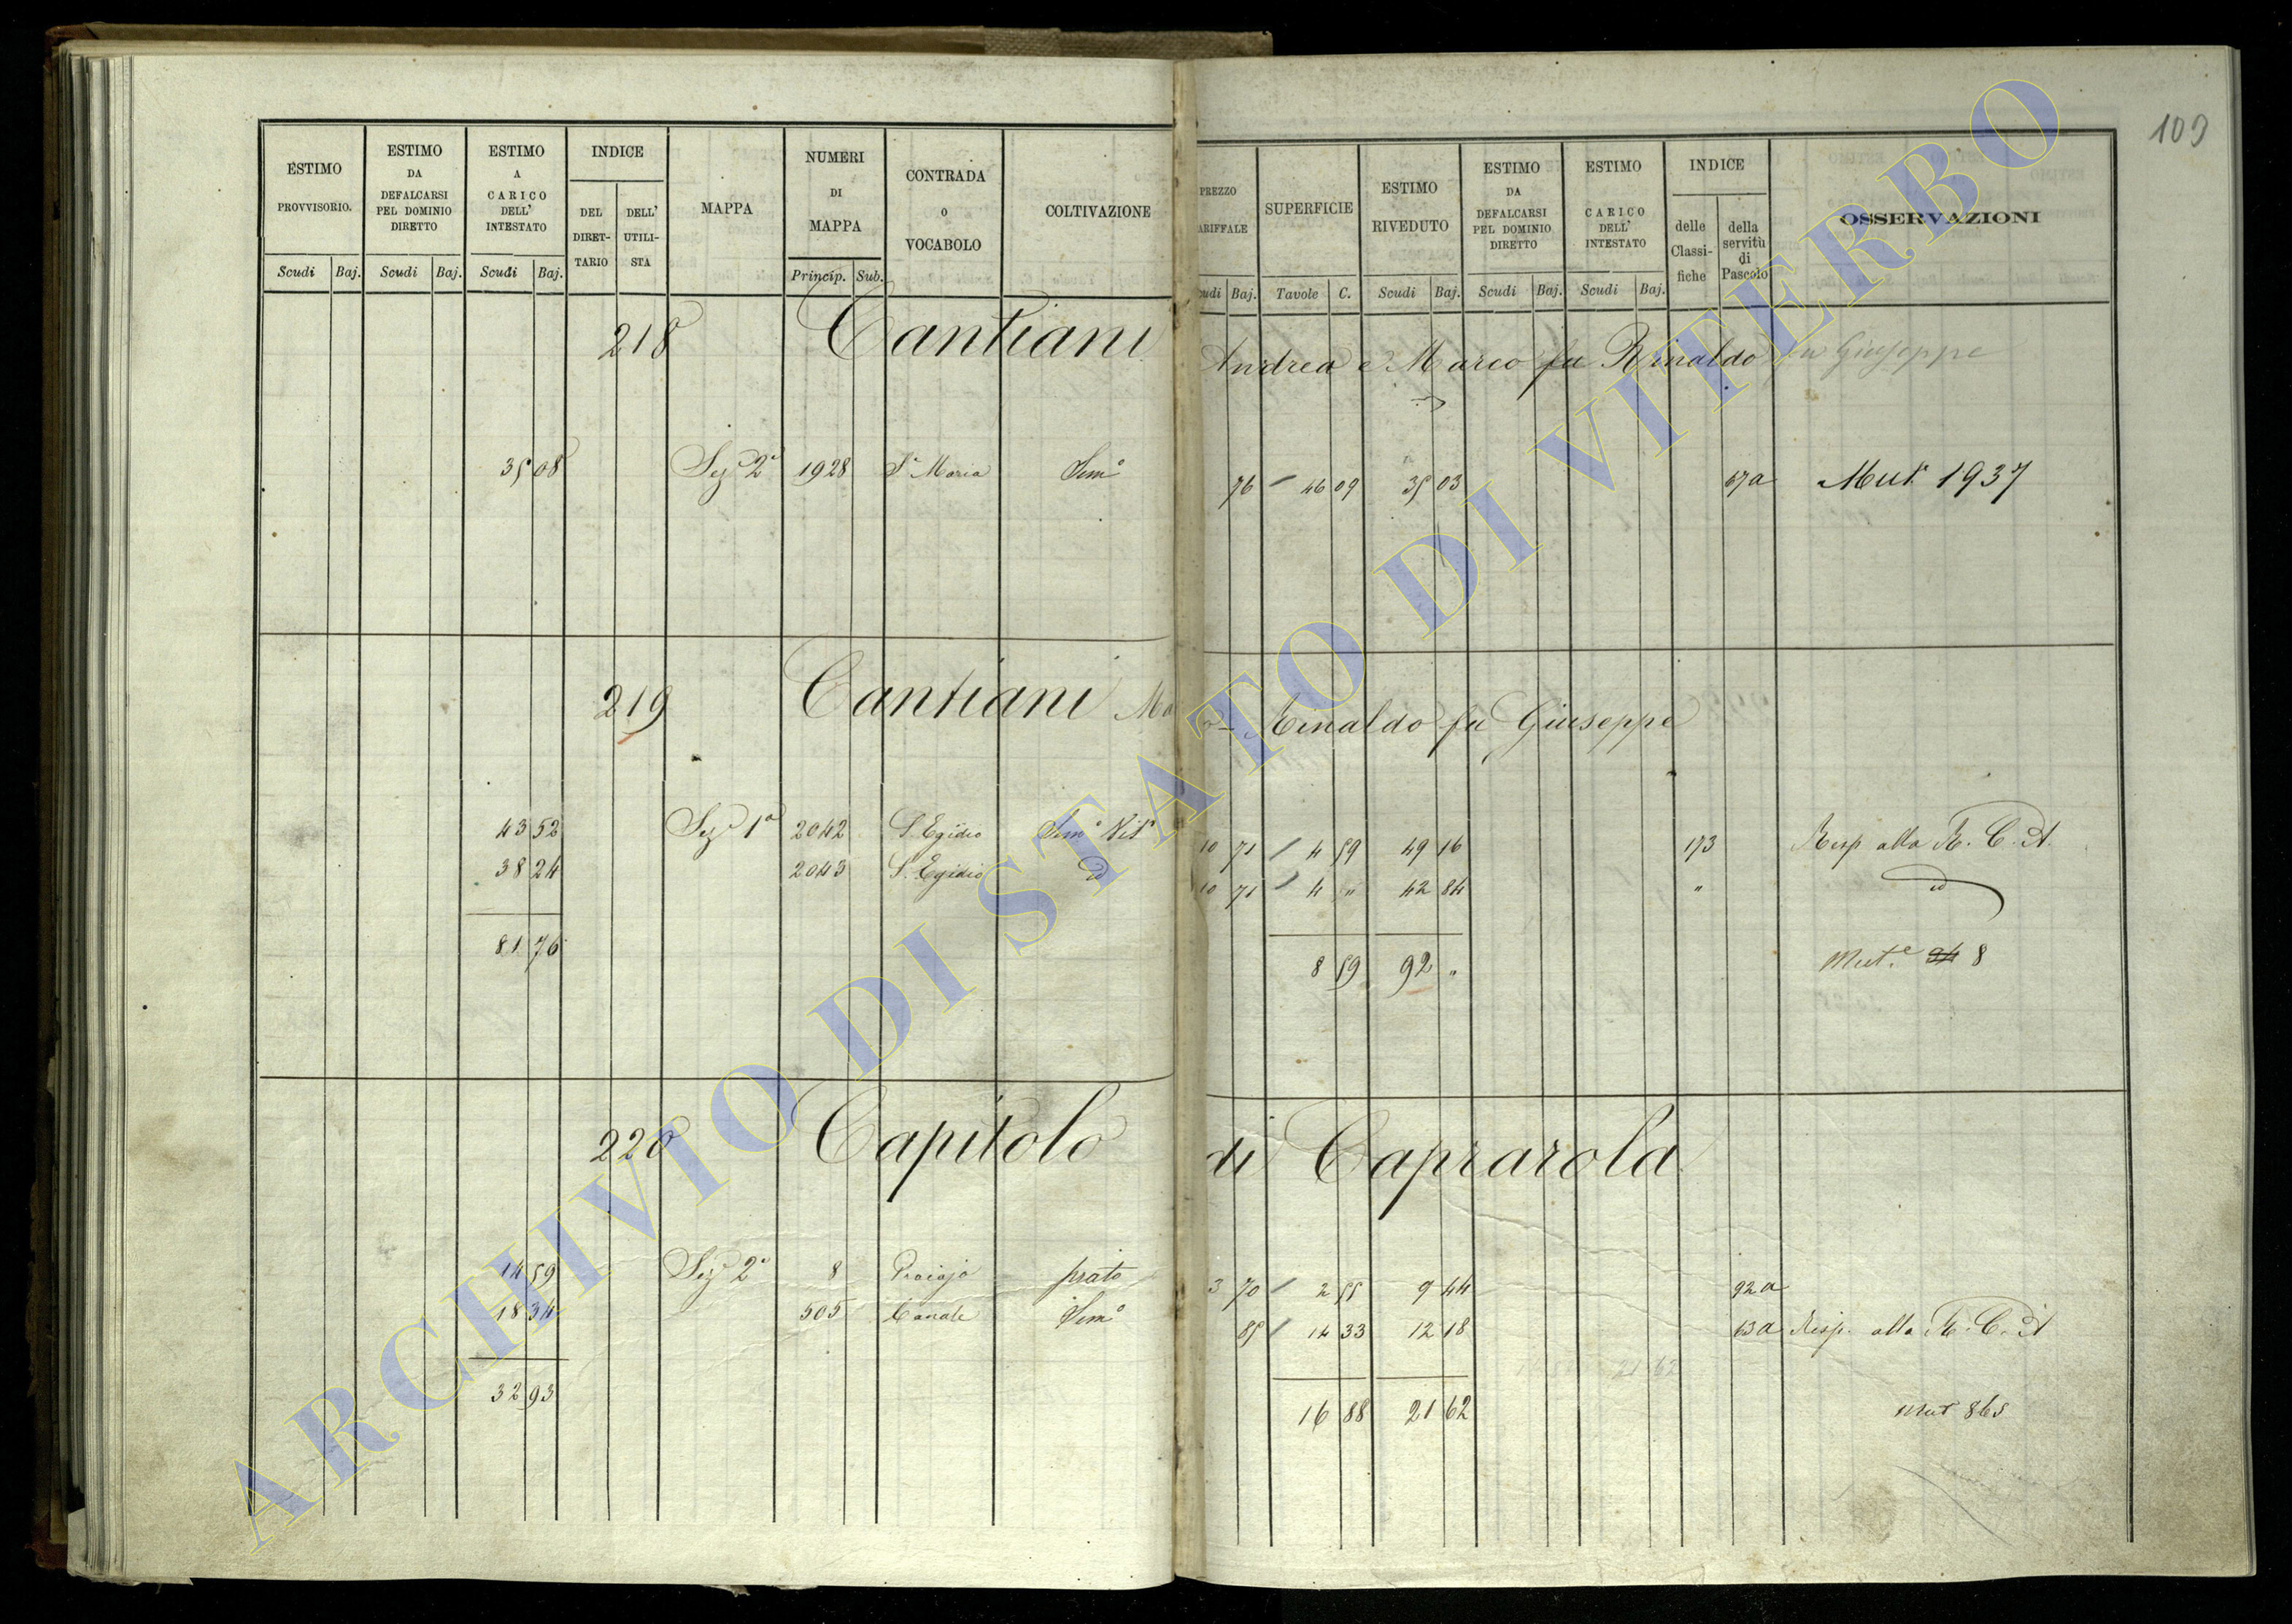 109
ESTIMO PROVVISORIO.
ESTIMO DA DEFALCARSI PEL DOMINIO DIRETTO
ESTIMO A CARICO DELL' INTESTATO
INDICE
DEL DIRET-TARIO
DELL' UTILI-STA
MAPPA
NUMERI DI MAPPA
CONTRADA O VOCABOLO
COLTIVAZIONE
PREZZO
ARIFFALE
SUPERFICIE
ESTIMO RIVEDUTO
ESTIMO DA DEFALCARSI PEL DOMINIO DIRETTO
ESTIMO CARICO DELL' INTESTATO
INDICE
delle Classi-fiche
della servitù di Pascolo
OSSERVAZIONI
Scudi Baj. Scudi Baj. Scudi Baj. Princip. Sub.
udi Baj. Tavole C. Scudi Baj. Scudi Baj. Scudi Baj.
218 Cantiani Andrea e Marco fu Rinaldo fu Giuseppe
35 08 Sez. 2a 1928 Sa Maria Semo 76 46 09 35 03 67a Muta 1937
219 Cantiani Rinaldo fu Giuseppe
43 52 Sez. 1a 2042 S. Egidio Semo Vito 10 71 4 59 49 16 173 Resp alla R. C. A.
38 24 2043 S. Egidio d 10 71 4 " 42 84 " d
81 76 8 59 92 " Mute 8
220 Capitolo di Caprarola
14 59 Sez. 2a 8 prato 3 70 2 55 9 44 92a
18 34 505 Canale Semo 85 14 33 12 18 63a Resp. alla R. C. A
21 62
32 93 16 88 21 62 Mut 865
ARCHIVIO DI STATO DI VITERBO